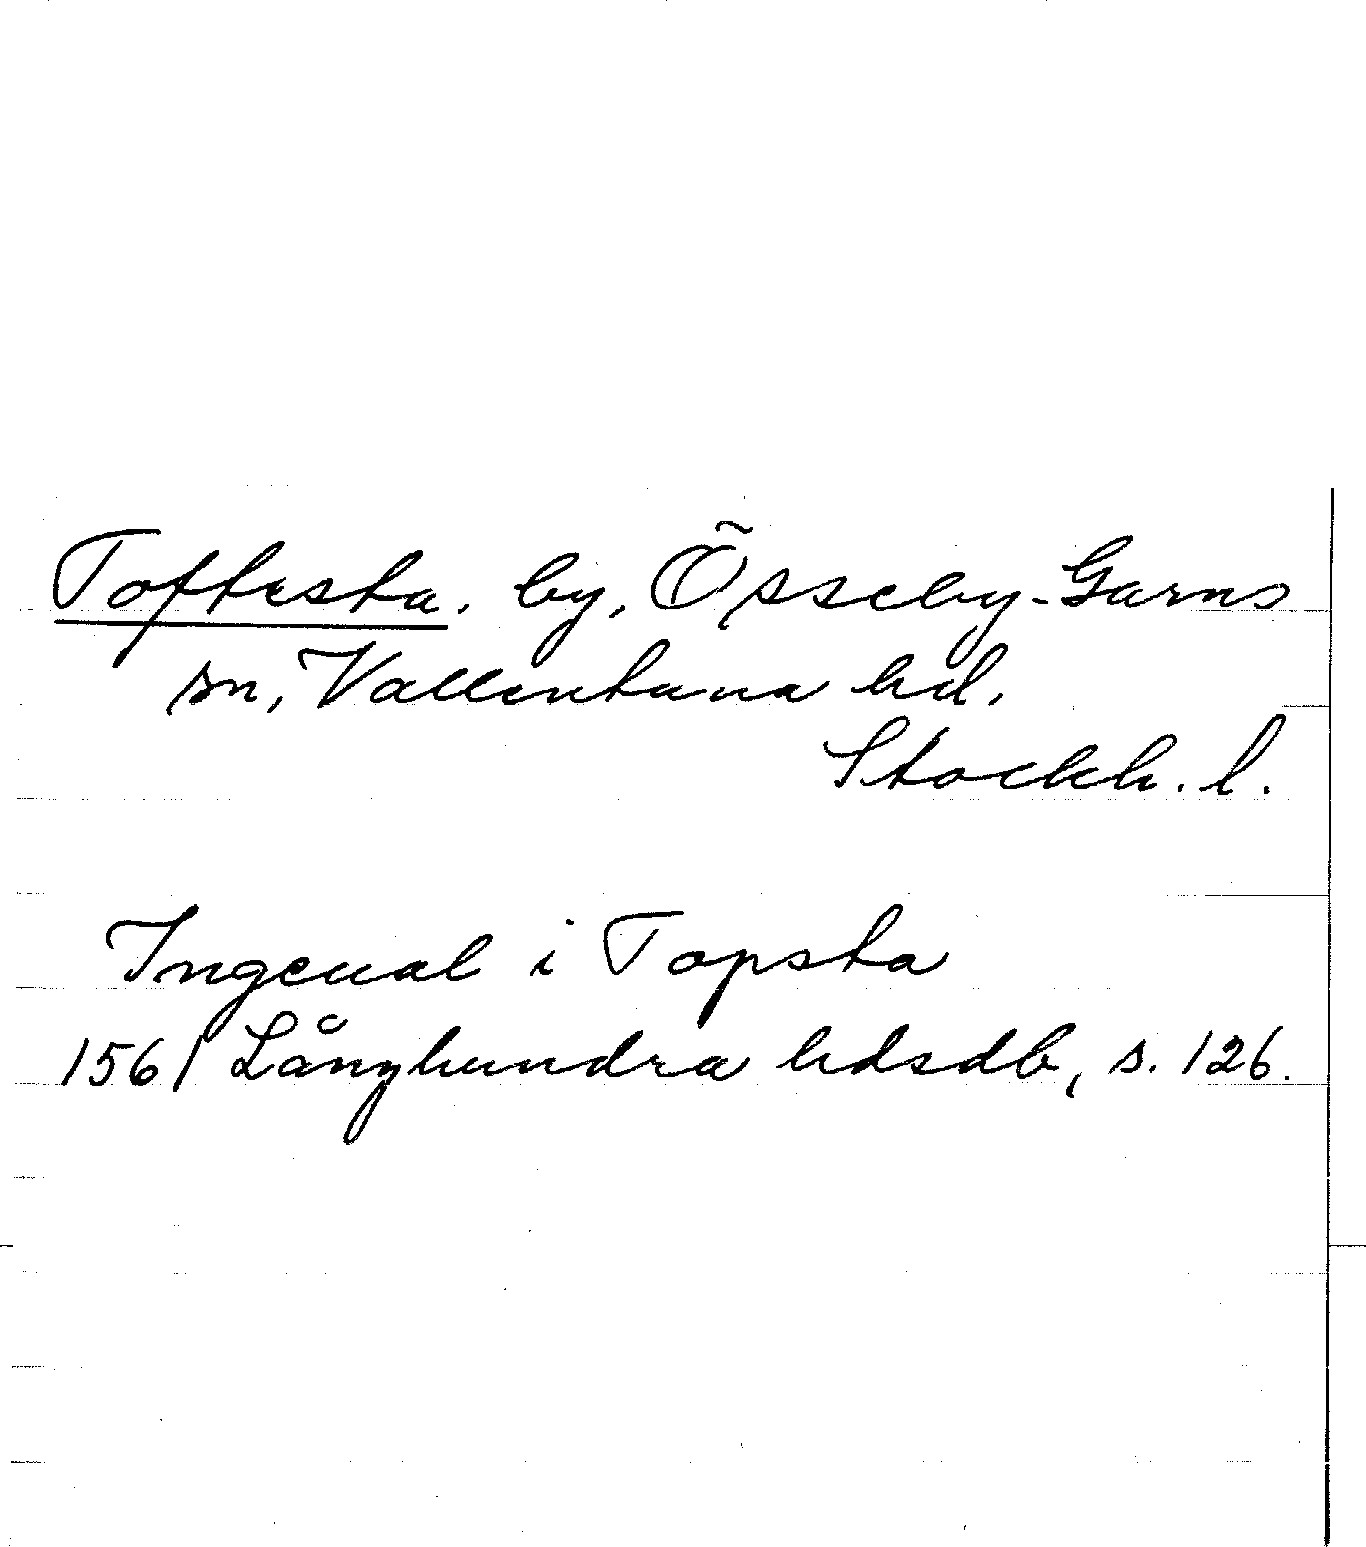 Toftesta. by, Össeby-Garns
sn, Vallentuna hd.
Stockh. l.
Ingeual i Topsta
1561 Långhundra hdsdb, s. 126.